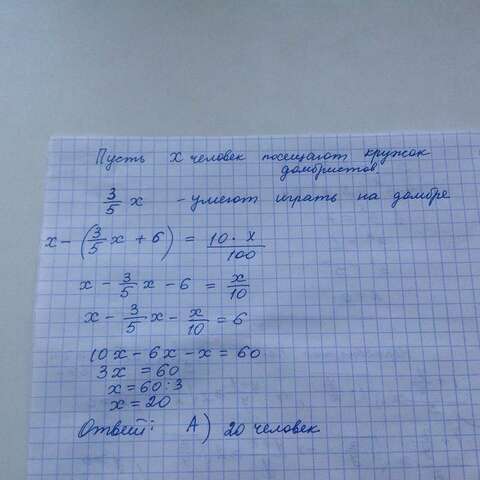 Пусть x человек посещают кружок
домбристов
3/5 x - умеют играть на домбре
x - (3/5 x + 6) = 10 · x / 100
x - 3/5 x - 6 = x/10
x - 3/5 x - x/10 = 6
10x - 6x - x = 60
3x = 60
x = 60 : 3
x = 20
Ответ: А) 20 человек